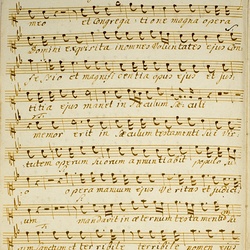 meo et Congrega=tione magna opera
Domini exquisita in omnes Voluntates ejus Con
fessio et magnificentia opus ejus et jus
titia ejus manet in Sæculum Sæculi
memor erit in Sæculum testamenti sui Vir
tutem operum suorum annuntiabit populo su
o opera manuum ejus Veritas et judici
um mandavit in æternum testamentum
sum sanctum et terribile terribile nomen